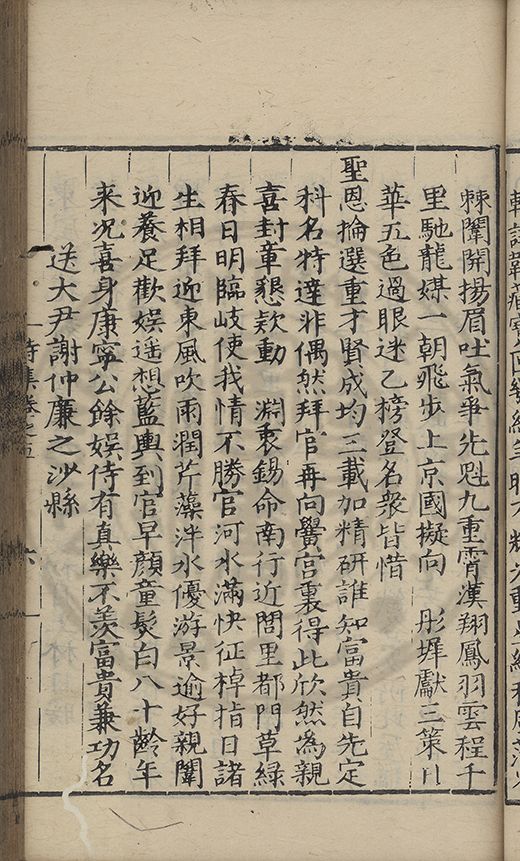 棘闈開揚眉吐氣爭先魁九重霄漢翔鳳羽雲程千
里馳龍媒一朝飛步上京國擬向 彤墀獻三策日
華五色過眼迷乙榜登名衆皆惜
聖恩掄選重才賢成均三載加精研誰知富貴自先定
科名特達非偶然拜官再向黌宮裏得此欣然為親
喜封章懇欵動 淵衷錫命南行近閭里都門草綠
春日明臨岐使我情不勝官河水滿快征棹指日諸
生相拜迎東風吹雨潤芹藻泮水優游景逾好親闈
迎養足歡娛遥想藍輿到官早顏童髮白八十齡年
来况喜身康寧公餘娛侍有真樂不羨富貴兼功名
送大尹謝仲廉之沙縣
詩集卷之五 六